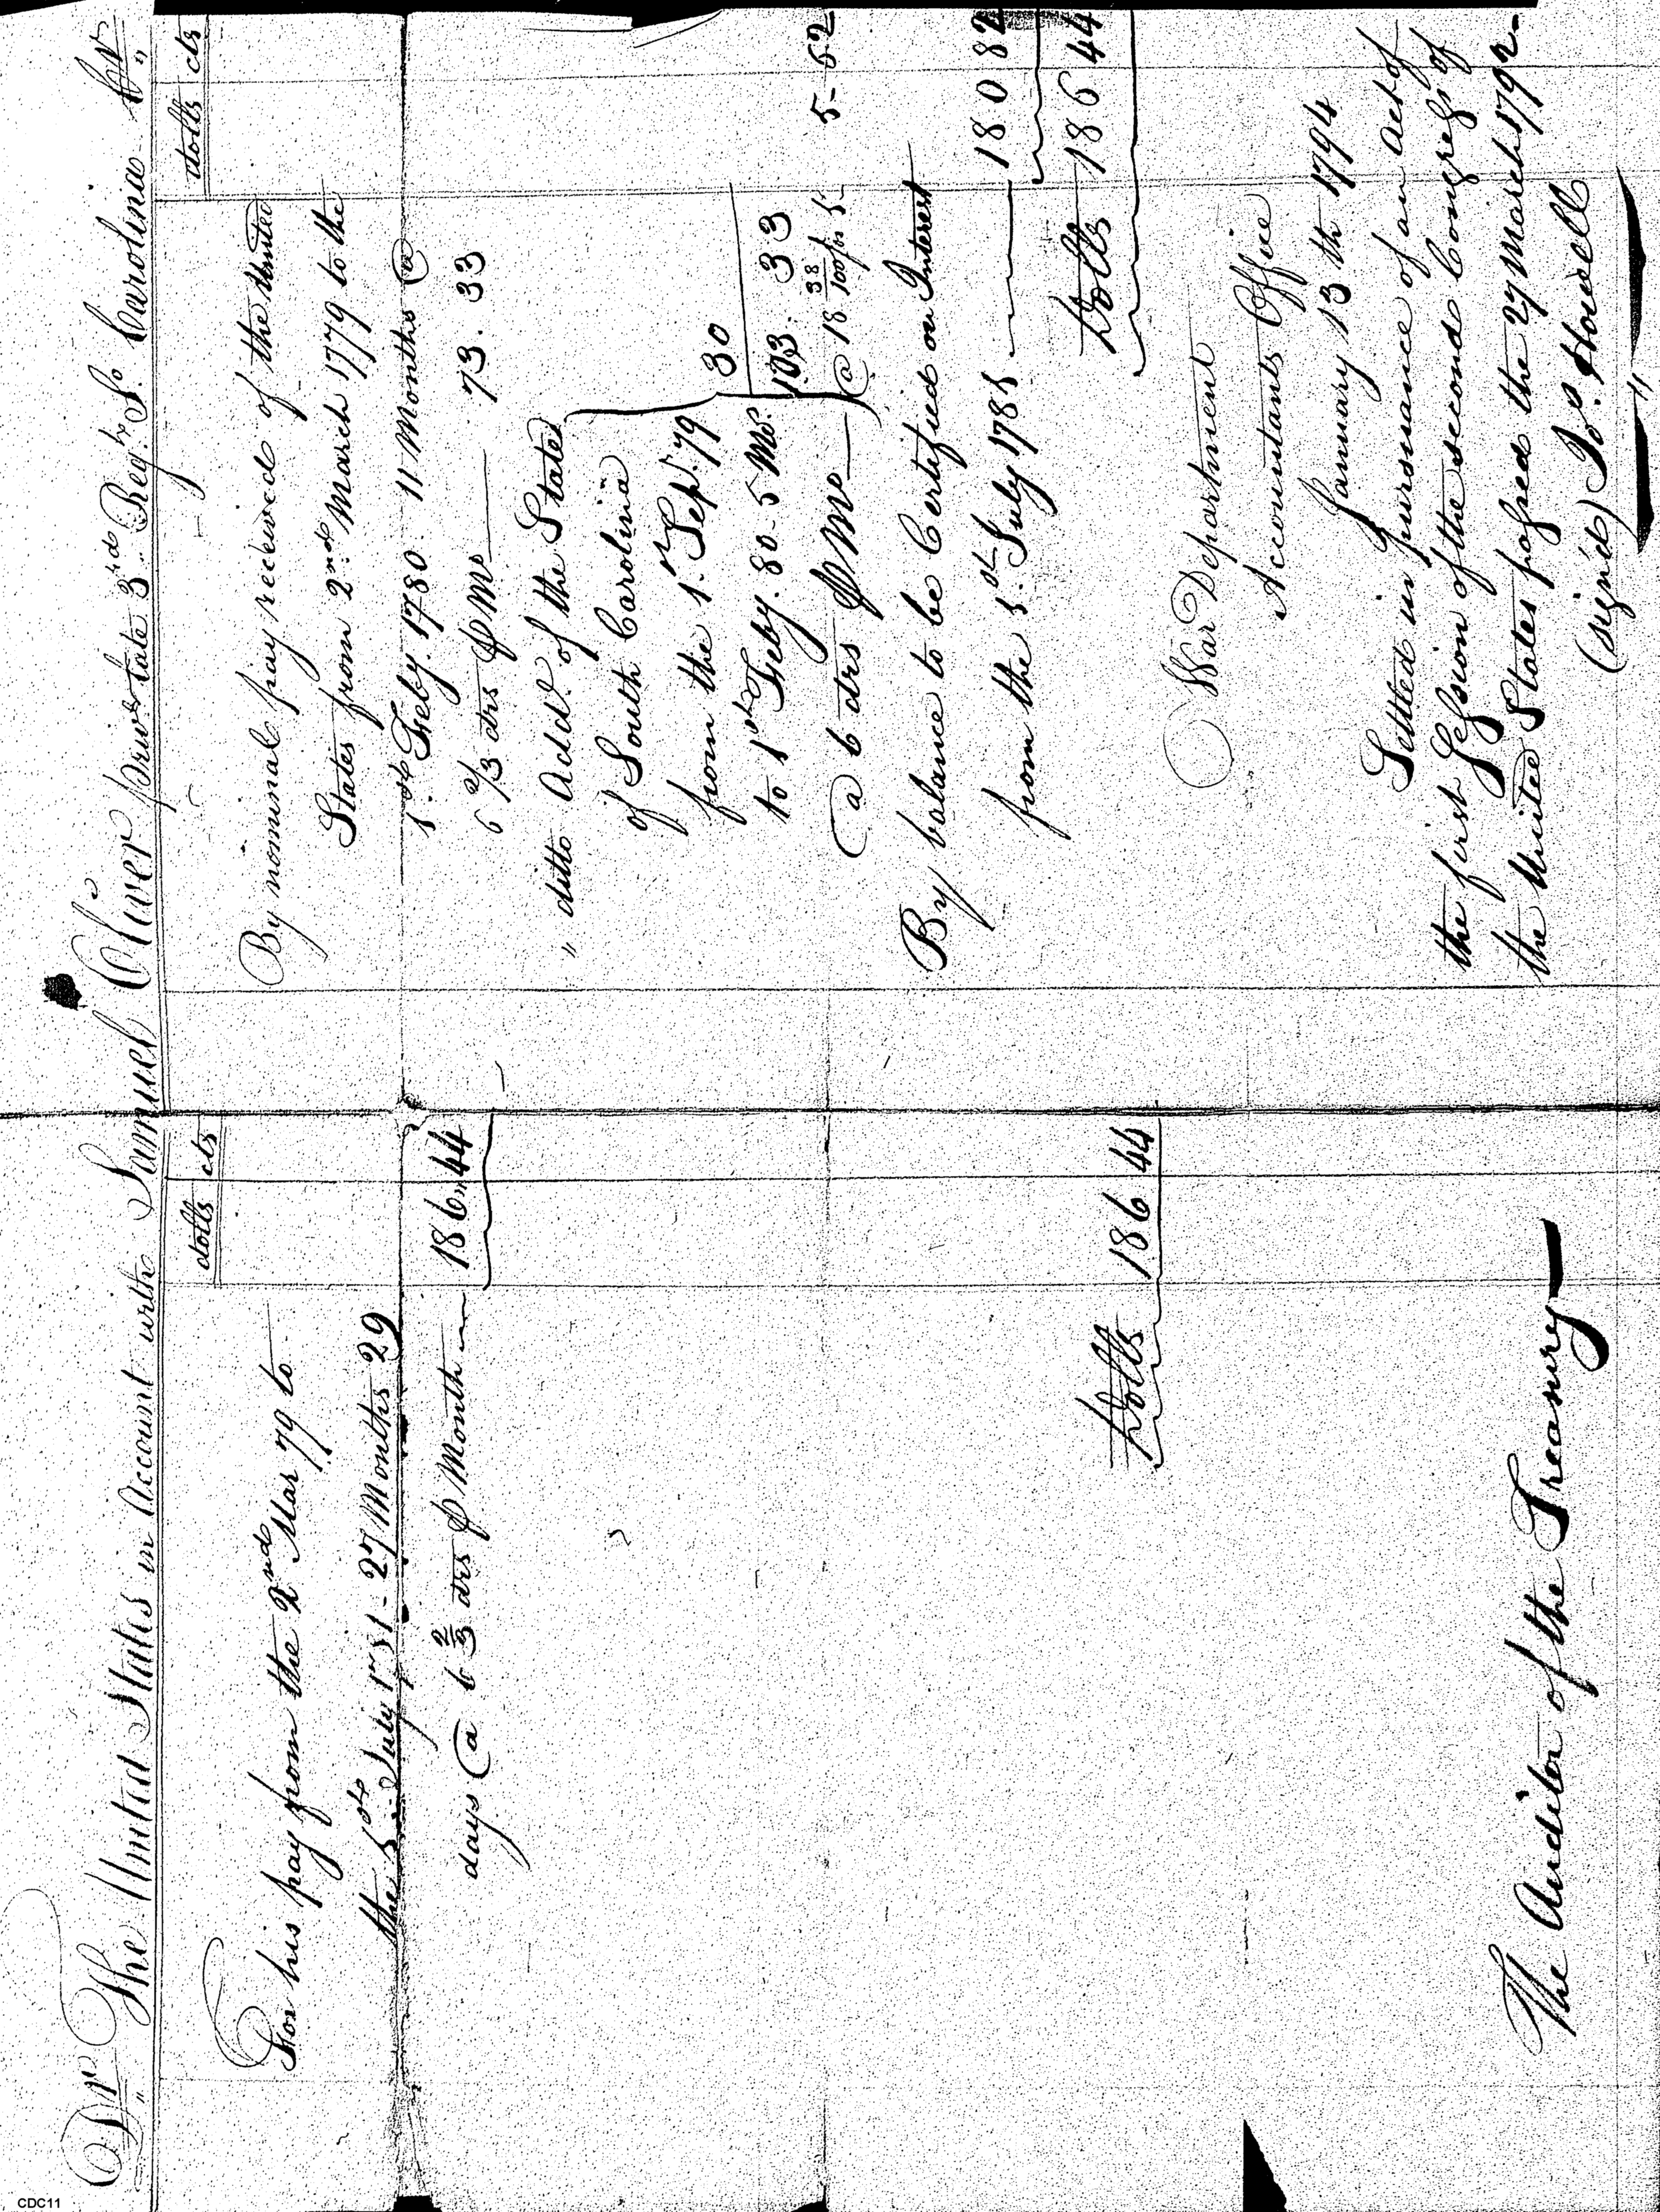 Dr The United States in Account with Samuel Oliver private 3rd Regt So. Carolina Cr
dolls cts
For his pay from the 2nd Mar 79 to
the 1st July 1781 - 27 Months 29
days @ 6 2/3 drs p Month 186,,44
Dolls 186 44
The Auditor of the Treasury
dolls cts
By nominal pay received of the United
States from 2nd March 1779 to the
1st Feby. 1780. 11 Months @
6 2/3 drs p Mo 73. 33
" ditto Addl. of the State
of South Carolina
from the 1st Sepr. 79
to 1st Feby. 80. 5 Mos. 30
@ 6 drs p Mo 103. 33
@ 18 38/100 for 1. 5-62
By balance to be Certified on Interest
from the 1st July 1781 180 82
Dolls 186 44
War Department
Accountants Office
January 13th 1794
Settled in pursuance of an act of
the first Session of the second Congress of
the United States passed the 27 March 1792-
(signed) Jos. Howell
CDC11